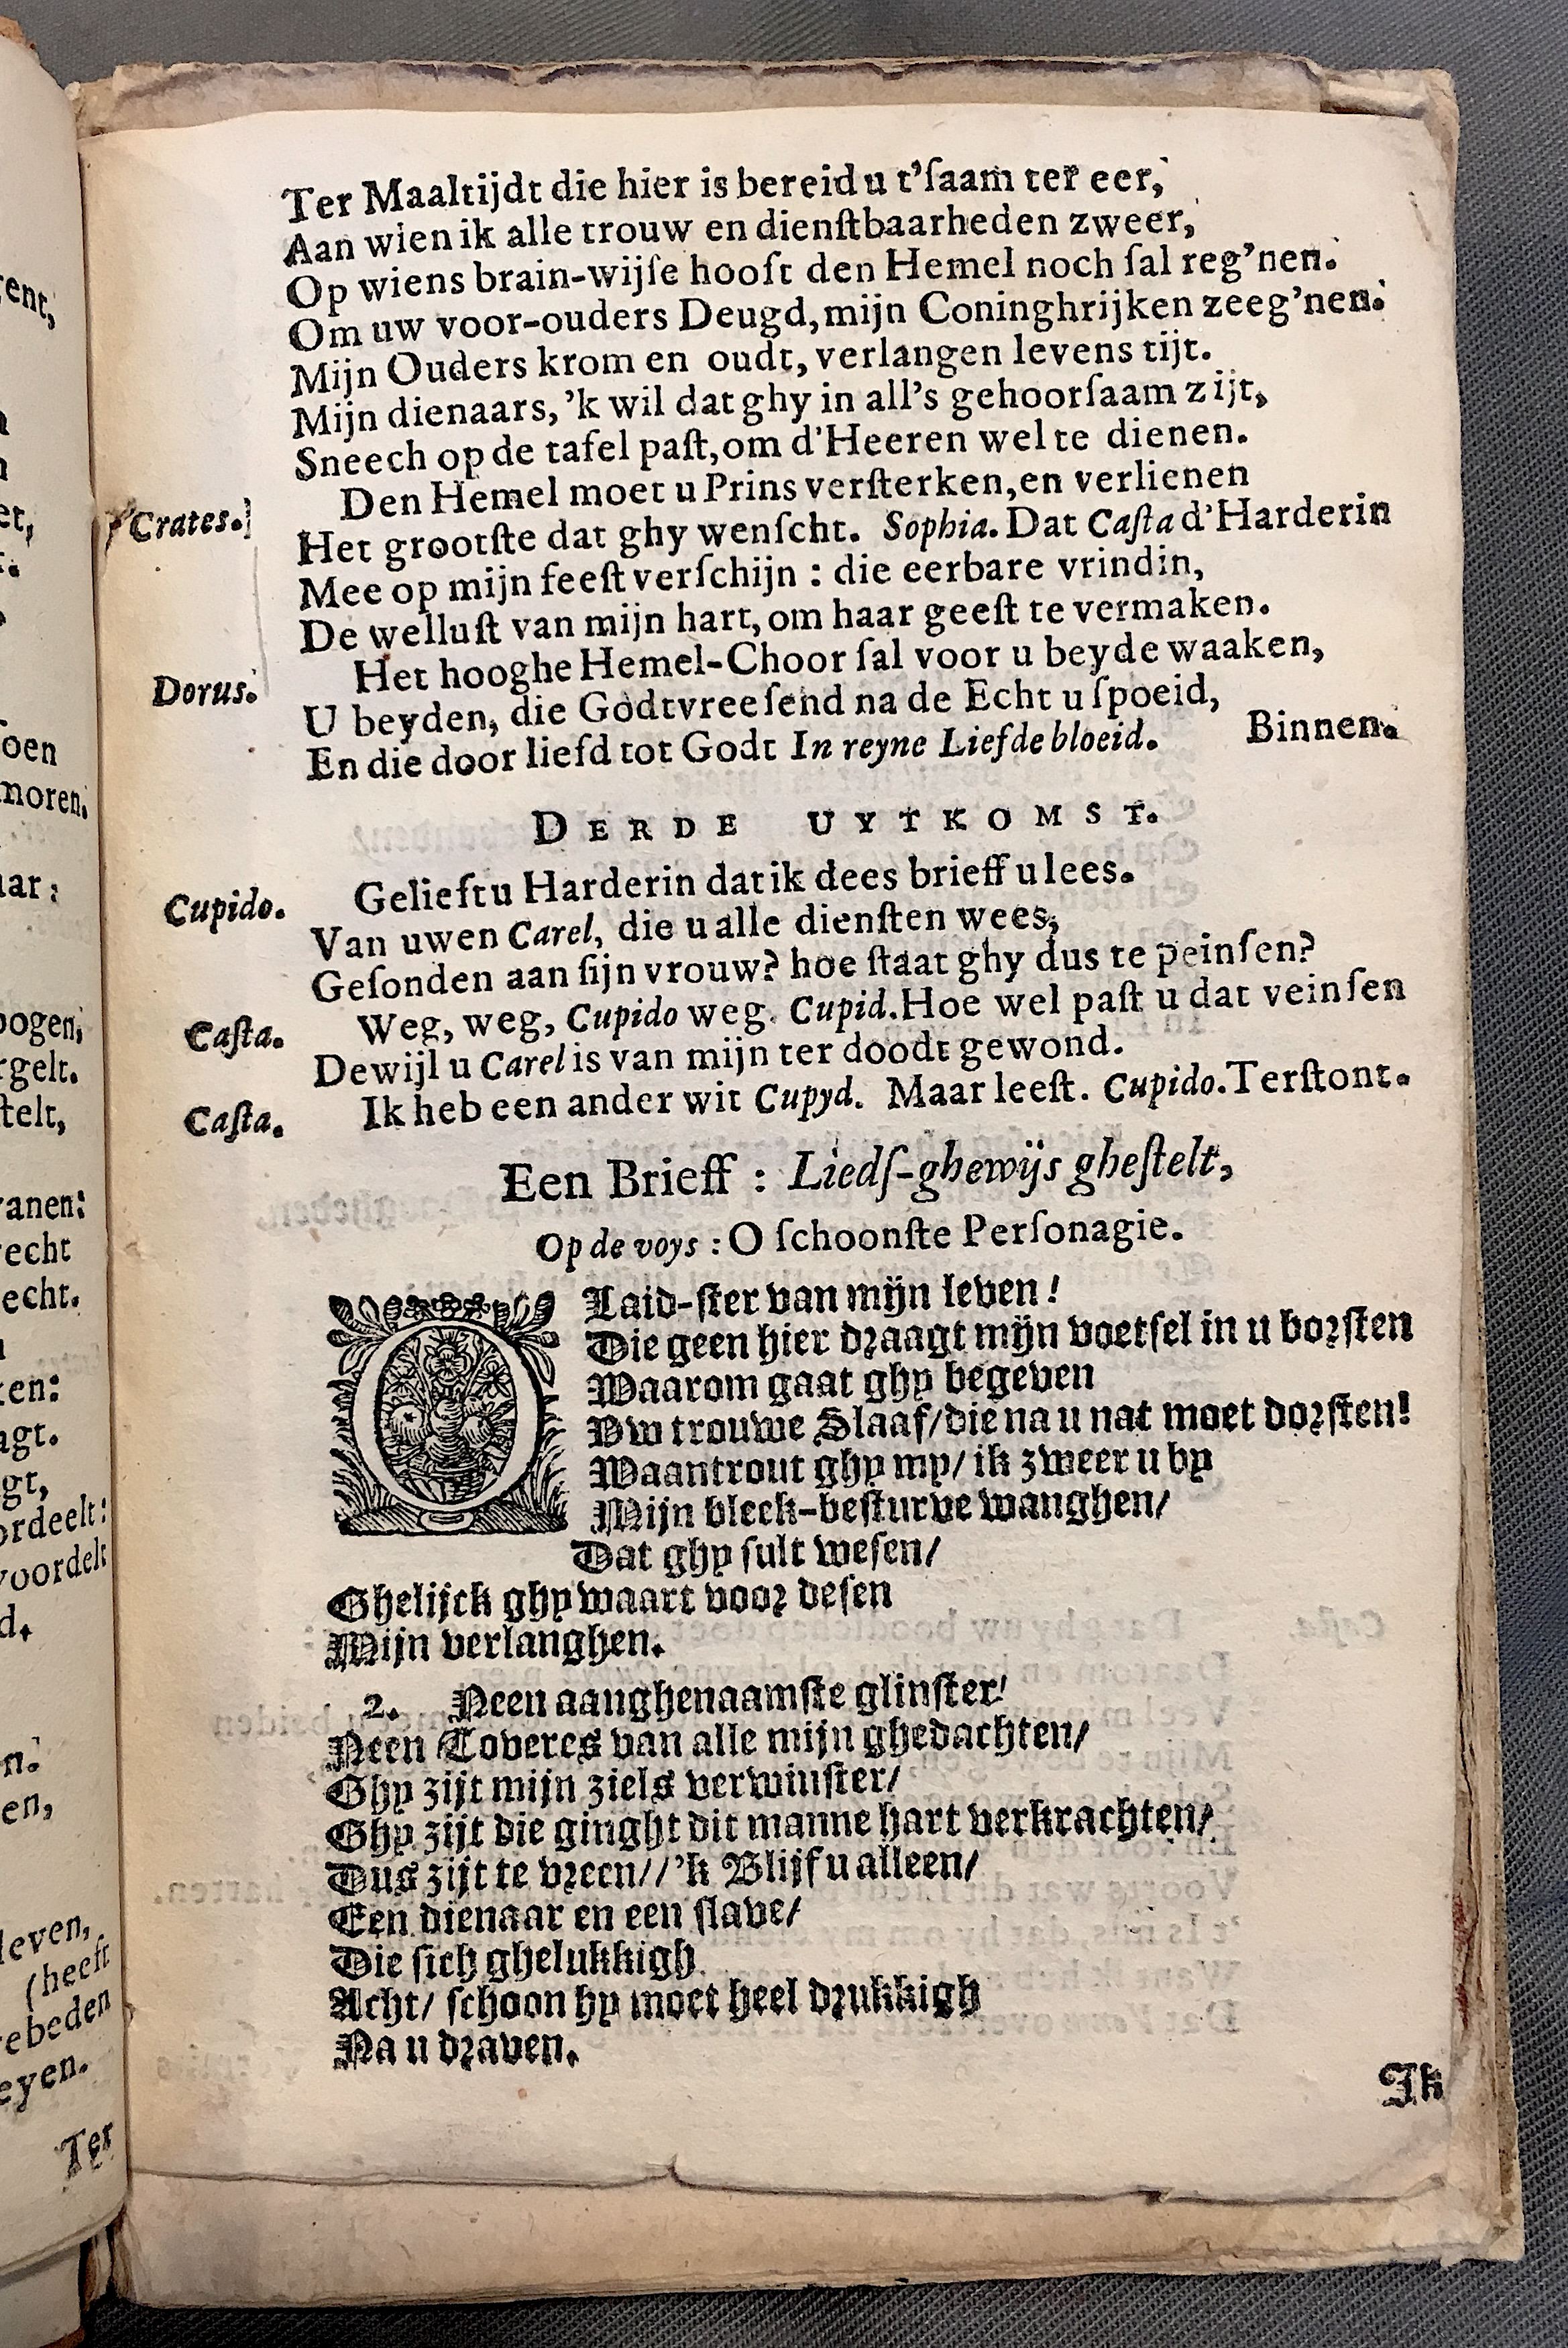 Ter Maaltijdt die hier is bereid u t'ſaam ter eer,
Aan wien ik alle trouw en dienſtbaarheden zweer,
Op wiens brain-wijſe hooft den Hemel noch ſal reg'nen.
Om uw voor-ouders Deugd, mijn Coninghrijken zeeg'nen.
Mijn Ouders krom en oudt, verlangen levens tijt.
Mijn dienaars, 'k wil dat ghy in all's gehoorſaam zijt,
Sneech op de tafel paſt, om d'Heeren wel te dienen.
Crates. Den Hemel moet u Prins verſterken, en verlienen
Het grootſte dat ghy wenſcht. Sophia. Dat Caſta d'Harderin
Mee op mijn feeſt verſchijn : die eerbare vrindin,
De welluſt van mijn hart, om haar geeſt te vermaken.
Dorus. Het hooghe Hemel-Choor ſal voor u beyde waaken,
U beyden, die Godtvreeſend na de Echt u ſpoeid,
En die door liefd tot Godt In reyne Liefde bloeid. Binnen.
DERDE UYTKOMST.
Cupido. Gelieft u Harderin dat ik dees brieff u lees.
Van uwen Carel, die u alle dienſten wees,
Geſonden aan ſijn vrouw? hoe ſtaat ghy dus te peinſen?
Caſta. Weg, weg, Cupido weg. Cupid. Hoe wel paſt u dat veinſen
Dewijl u Carel is van mijn ter doodt gewond.
Caſta. Ik heb een ander wit Cupyd. Maar leeſt. Cupido. Terſtont.
Een Brieff : Liedſ-ghewijs gheſtelt,
Op de voys : O ſchoonſte Perſonagie.
O Laid-ſter van mijn leven!
Die geen hier draagt mijn voetſel in u borſten
Waarom gaat ghy begeven
Vw trouwe Slaaf/die na u nat moet dorſten!
Waantrout ghy my/ ik zweer u by
Mijn bleek-beſturve wanghen/
Dat ghy ſult weſen/
Ghelijck ghy waart voor deſen
Mijn verlanghen.
2. Neen aanghenaamſte glinſter!
Neen Toveres van alle mijn ghedachten/
Ghy zijt mijn ziels verwinſter/
Ghy zijt die ginght dit manne hart verkrachten/
Dus zijt te vreen//'k Blijf u alleen/
Een dienaar en een ſlave/
Die ſich ghelukkigh
Acht/ ſchoon hy moet heel drukkigh
Na u draven.
Ik
rent,
et,
oen
moren.
aar:
bogen,
rgelt.
telt,
ranen:
recht
echt.
ten:
agt.
gt,
ordeelt:
voordelt
d.
n.
en,
leven,
(heeft
rebeden
eyen.
Ter